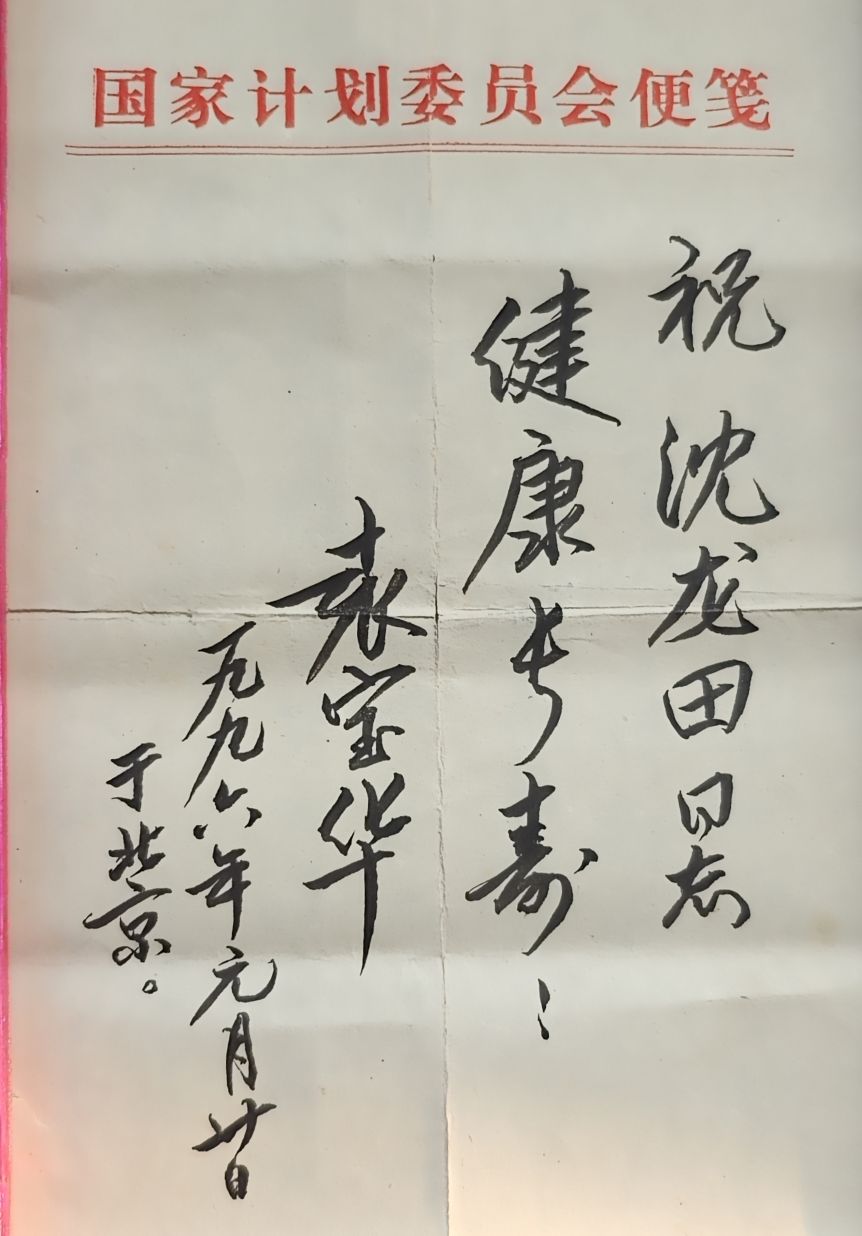 国家计划委员会便笺
祝沈龙田同志
健康长寿！
袁宝华
一九九六年元月廿日
于北京。